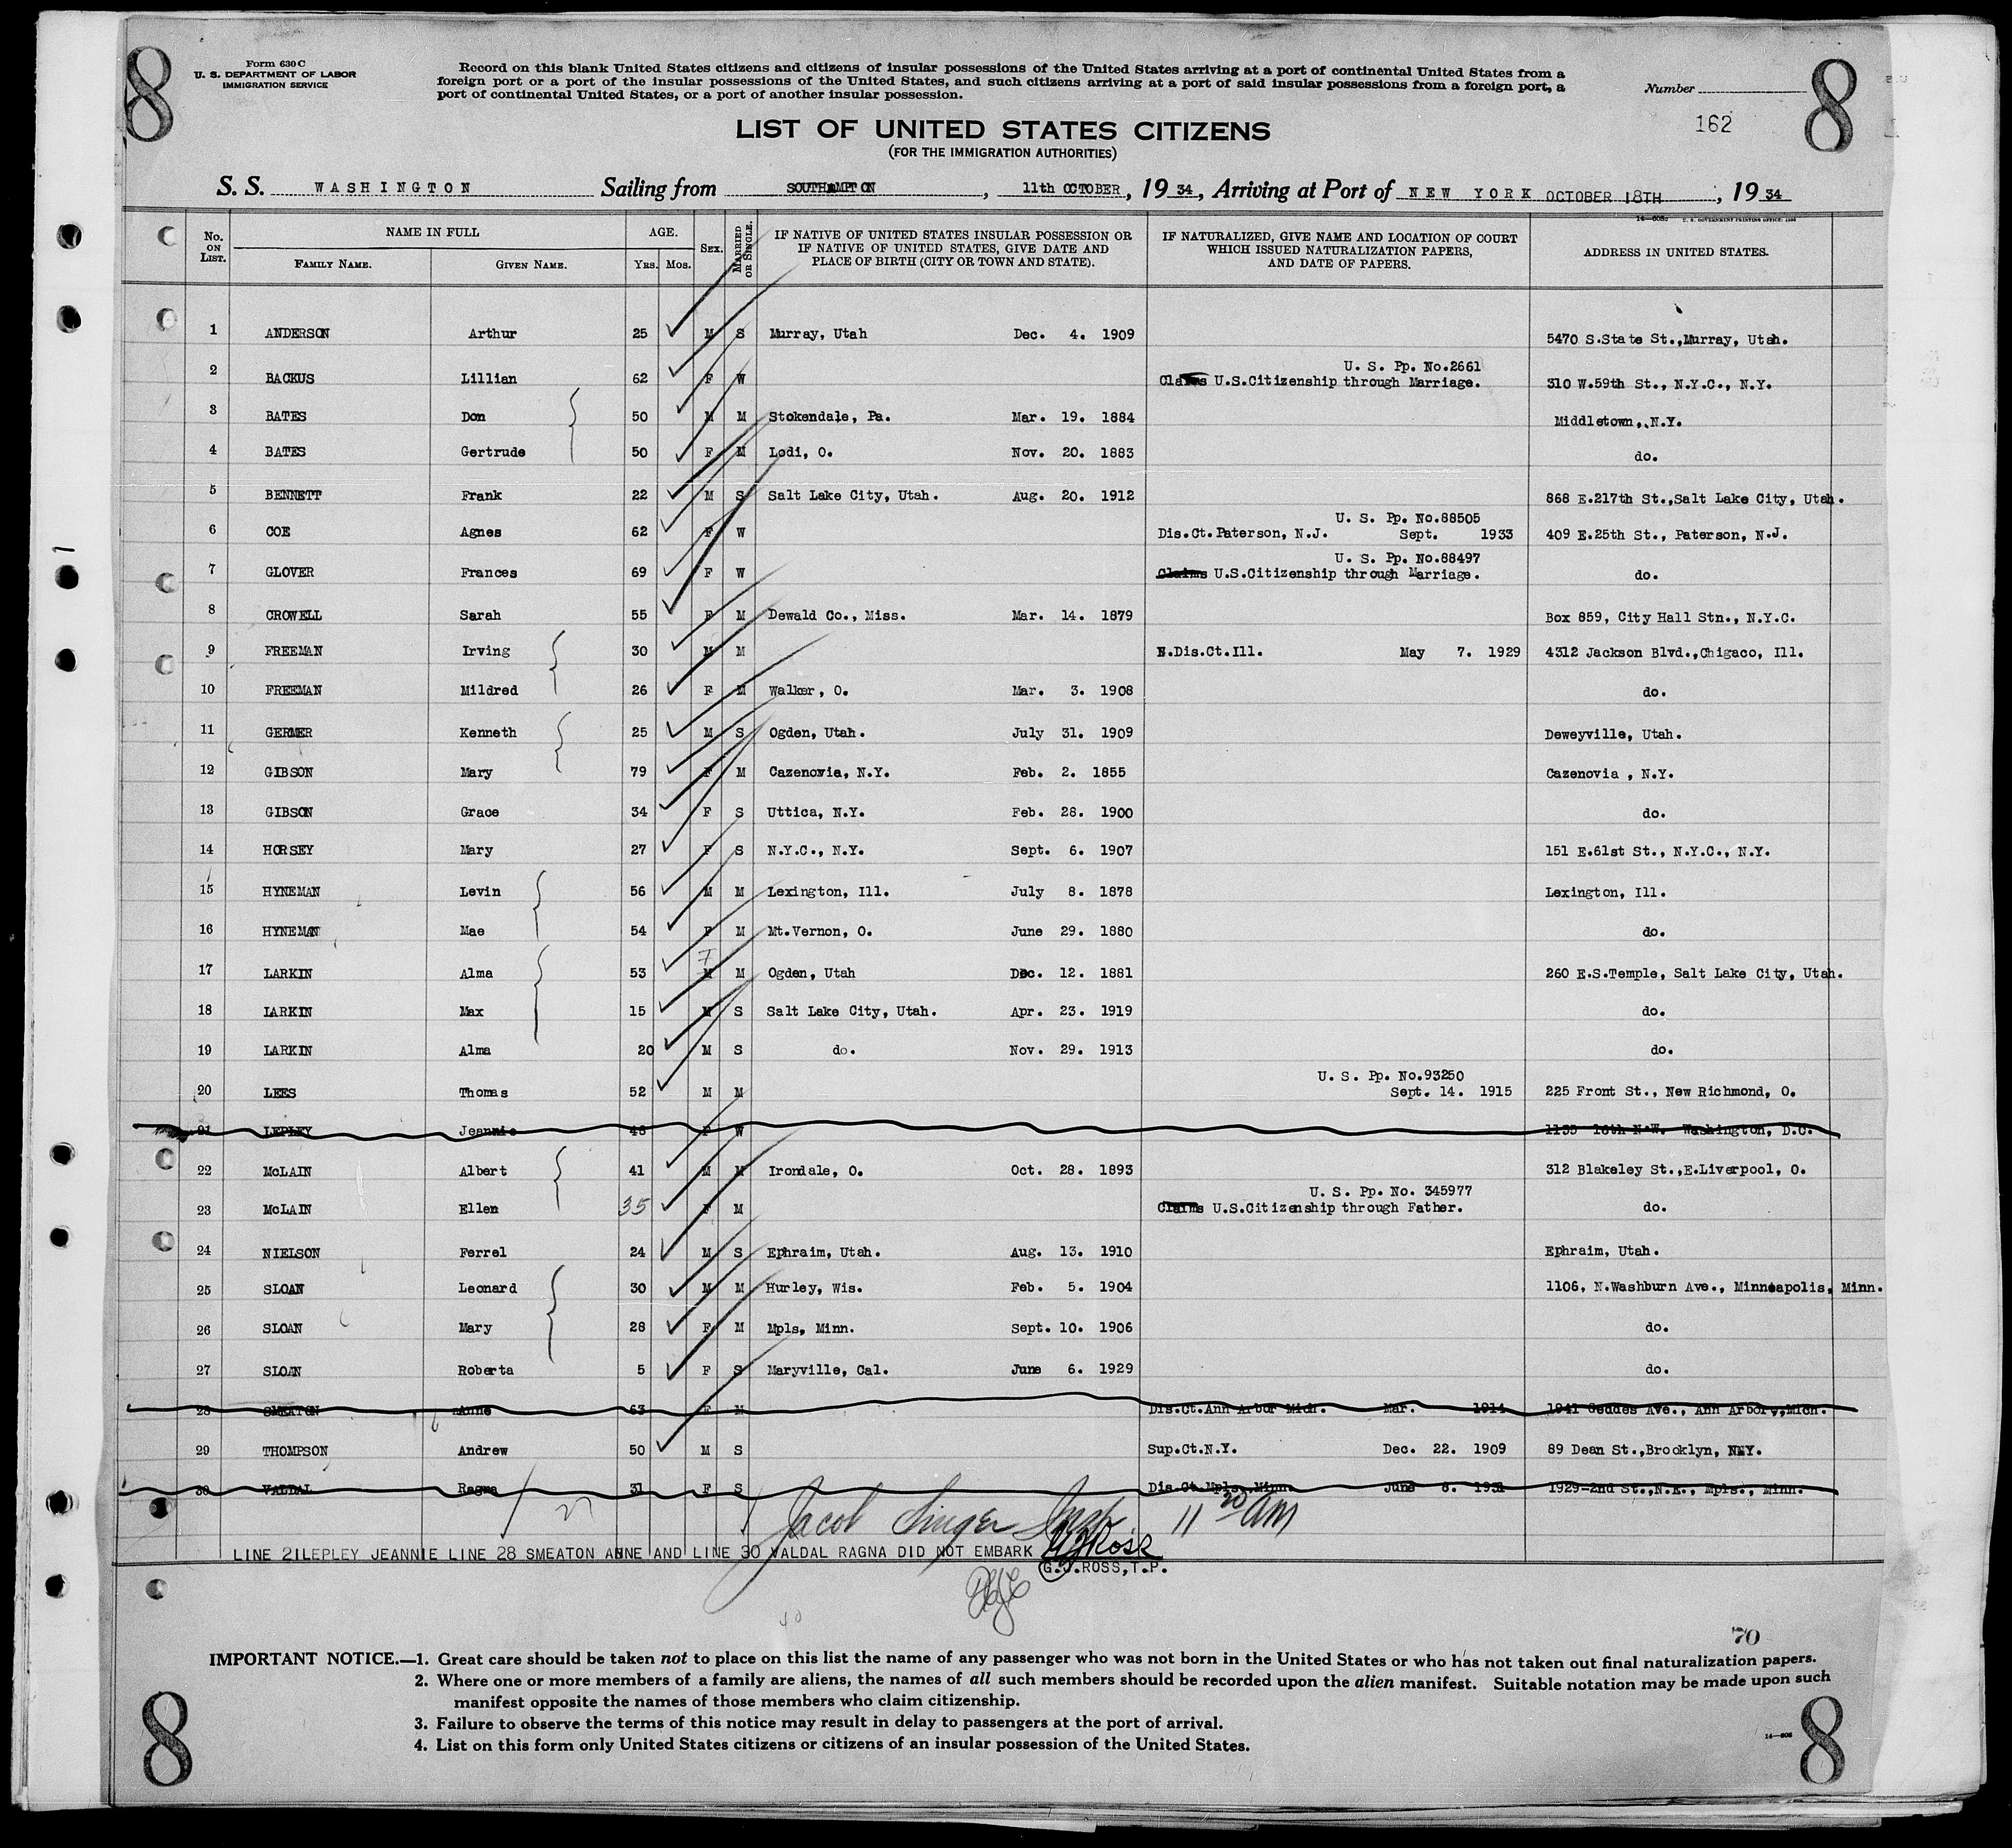 8
8
Form 630 C
U. S. DEPARTMENT OF LABOR
IMMIGRATION SERVICE
Record on this blank United States citizens and citizens of insular possessions of the United States arriving at a port of continental United States from a
foreign port or a port of the insular possessions of the United States, and such citizens arriving at a port of said insular possessions from a foreign port, a
port of continental United States, or a port of another insular possession.
Number
162
LIST OF UNITED STATES CITIZENS
(FOR THE IMMIGRATION AUTHORITIES)
S. S. WASHINGTON Sailing from SOUTHAMPTON, 11th OCTOBER, 19 34, Arriving at Port of NEW YORK OCTOBER 18TH, 19 34
No. ON LIST. NAME IN FULL FAMILY NAME. GIVEN NAME. AGE. Yrs. Mos. SEX. MARRIED OR SINGLE. IF NATIVE OF UNITED STATES INSULAR POSSESSION OR IF NATIVE OF UNITED STATES, GIVE DATE AND PLACE OF BIRTH (CITY OR TOWN AND STATE). IF NATURALIZED, GIVE NAME AND LOCATION OF COURT WHICH ISSUED NATURALIZATION PAPERS, AND DATE OF PAPERS. ADDRESS IN UNITED STATES.
1 ANDERSON Arthur 25 M S Murray, Utah Dec. 4. 1909 5470 S.State St.,Murray, Utah.
U. S. Pp. No.2661
2 BACKUS Lillian 62 F W Claims U.S.Citizenship through Marriage. 310 W.59th St., N.Y.C., N.Y.
3 BATES Don 50 M M Stokendale, Pa. Mar. 19. 1884 Middletown,.N.Y.
4 BATES Gertrude 50 F M Lodi, O. Nov. 20. 1883 do.
5 BENNETT Frank 22 M S Salt Lake City, Utah. Aug. 20. 1912 868 E.217th St.,Salt Lake City, Utah.
U. S. Pp. No.88505
6 COE Agnes 62 F W Dis.Ct.Paterson, N.J. Sept. 1933 409 E.25th St., Paterson, N.J.
U. S. Pp. No.88497
7 GLOVER Frances 69 F W Claims U.S.Citizenship through Marriage. do.
8 CROWELL Sarah 55 F M Dewald Co., Miss. Mar. 14. 1879 Box 859, City Hall Stn., N.Y.C.
9 FREEMAN Irving 30 M M N.Dis.Ct.Ill. May 7. 1929 4312 Jackson Blvd.,Chigaco, Ill.
10 FREEMAN Mildred 26 F M Walker, O. Mar. 3. 1908 do.
11 GERMER Kenneth 25 M S Ogden, Utah. July 31. 1909 Deweyville, Utah.
12 GIBSON Mary 79 F M Cazenovia, N.Y. Feb. 2. 1855 Cazenovia , N.Y.
13 GIBSON Grace 34 F S Uttica, N.Y. Feb. 28. 1900 do.
14 HORSEY Mary 27 F S N.Y.C., N.Y. Sept. 6. 1907 151 E.61st St., N.Y.C., N.Y.
15 HYNEMAN Levin 56 M M Lexington, Ill. July 8. 1878 Lexington, Ill.
16 HYNEMAN Mae 54 F M Mt.Vernon, O. June 29. 1880 do.
F
17 LARKIN Alma 53 M M Ogden, Utah Dec. 12. 1881 260 E.S.Temple, Salt Lake City, Utah.
18 LARKIN Max 15 M S Salt Lake City, Utah. Apr. 23. 1919 do.
19 LARKIN Alma 20 M S do. Nov. 29. 1913 do.
U. S. Pp. No.93250
20 LEES Thomas 52 M M Sept. 14. 1915 225 Front St., New Richmond, O.
21 LEPLEY Jeannie 48 F W 1135 16th N.W. Washington, D.C.
22 McLAIN Albert 41 M M Irondale, O. Oct. 28. 1893 312 Blakeley St.,E.Liverpool, O.
U. S. Pp. No. 345977
23 McLAIN Ellen 35 F M Claims U.S.Citizenship through Father. do.
24 NIELSON Ferrel 24 M S Ephraim, Utah. Aug. 13. 1910 Ephraim, Utah.
25 SLOAN Leonard 30 M M Hurley, Wis. Feb. 5. 1904 1106, N.Washburn Ave., Minneapolis, Minn.
26 SLOAN Mary 28 F M Mpls, Minn. Sept. 10. 1906 do.
27 SLOAN Roberta 5 F S Maryville, Cal. June 6. 1929 do.
28 SMEATON Anne 63 F M Dis.Ct.Ann Arbor Mich. Mar. 1914 1941 Geddes Ave., Ann Arbor,,Mich.
29 THOMPSON Andrew 50 M S Sup.Ct.N.Y. Dec. 22. 1909 89 Dean St.,Brooklyn, NY.
30 VALDAL Ragna 31 F S Dis.Ct.Mpls,Minn. June 6. 1931 1929-2nd St.,N.E., Mpls., Minn.
27 Jacob Singer Insp. 11 20 am
LINE 21LEPLEY JEANNIE LINE 28 SMEATON ANNE AND LINE 30 VALDAL RAGNA DID NOT EMBARK GJRoss
G.J.ROSS,T.P.
70
IMPORTANT NOTICE.—1. Great care should be taken not to place on this list the name of any passenger who was not born in the United States or who has not taken out final naturalization papers.
2. Where one or more members of a family are aliens, the names of all such members should be recorded upon the alien manifest. Suitable notation may be made upon such
manifest opposite the names of those members who claim citizenship.
3. Failure to observe the terms of this notice may result in delay to passengers at the port of arrival.
4. List on this form only United States citizens or citizens of an insular possession of the United States.
8
8